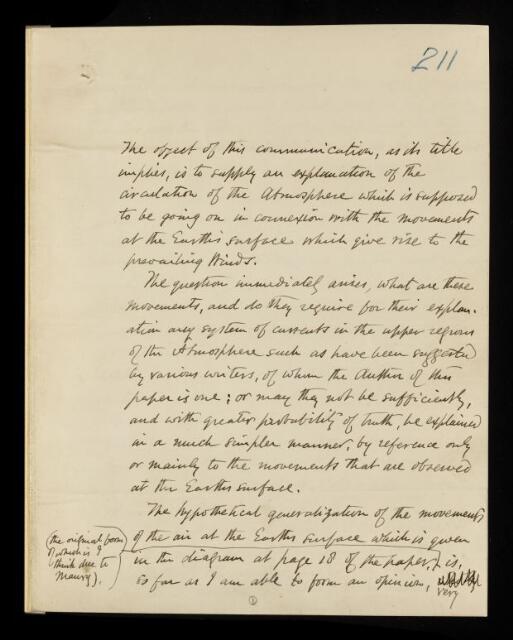 211
The object of this communication, as its title
implies, is to supply an explanation of the
circulation of the Atmosphere which is supposed
to be going on in connexion with the movements
at the Earth's surface which give rise to the
prevailing Winds.
The question immediately arises, what are these
movements, and do they require for their explan-
ation any system of currents in the upper regions
of the Atmosphere such as have been suggested
by various writers, of whom the Author of this
paper is one; or may they not be sufficiently,
and with greater probability of truth, be explained
in a much simpler manner, by reference only
or mainly to the movements that are observed
at the Earth's surface.
The hypothetical generalization of the movements
of the air at the Earth's surface which is given
(the original form
of which is I
think due to
Maury).
in the diagram at page 18 of the paper, is,
so far as I am able to form an opinion,
very
1